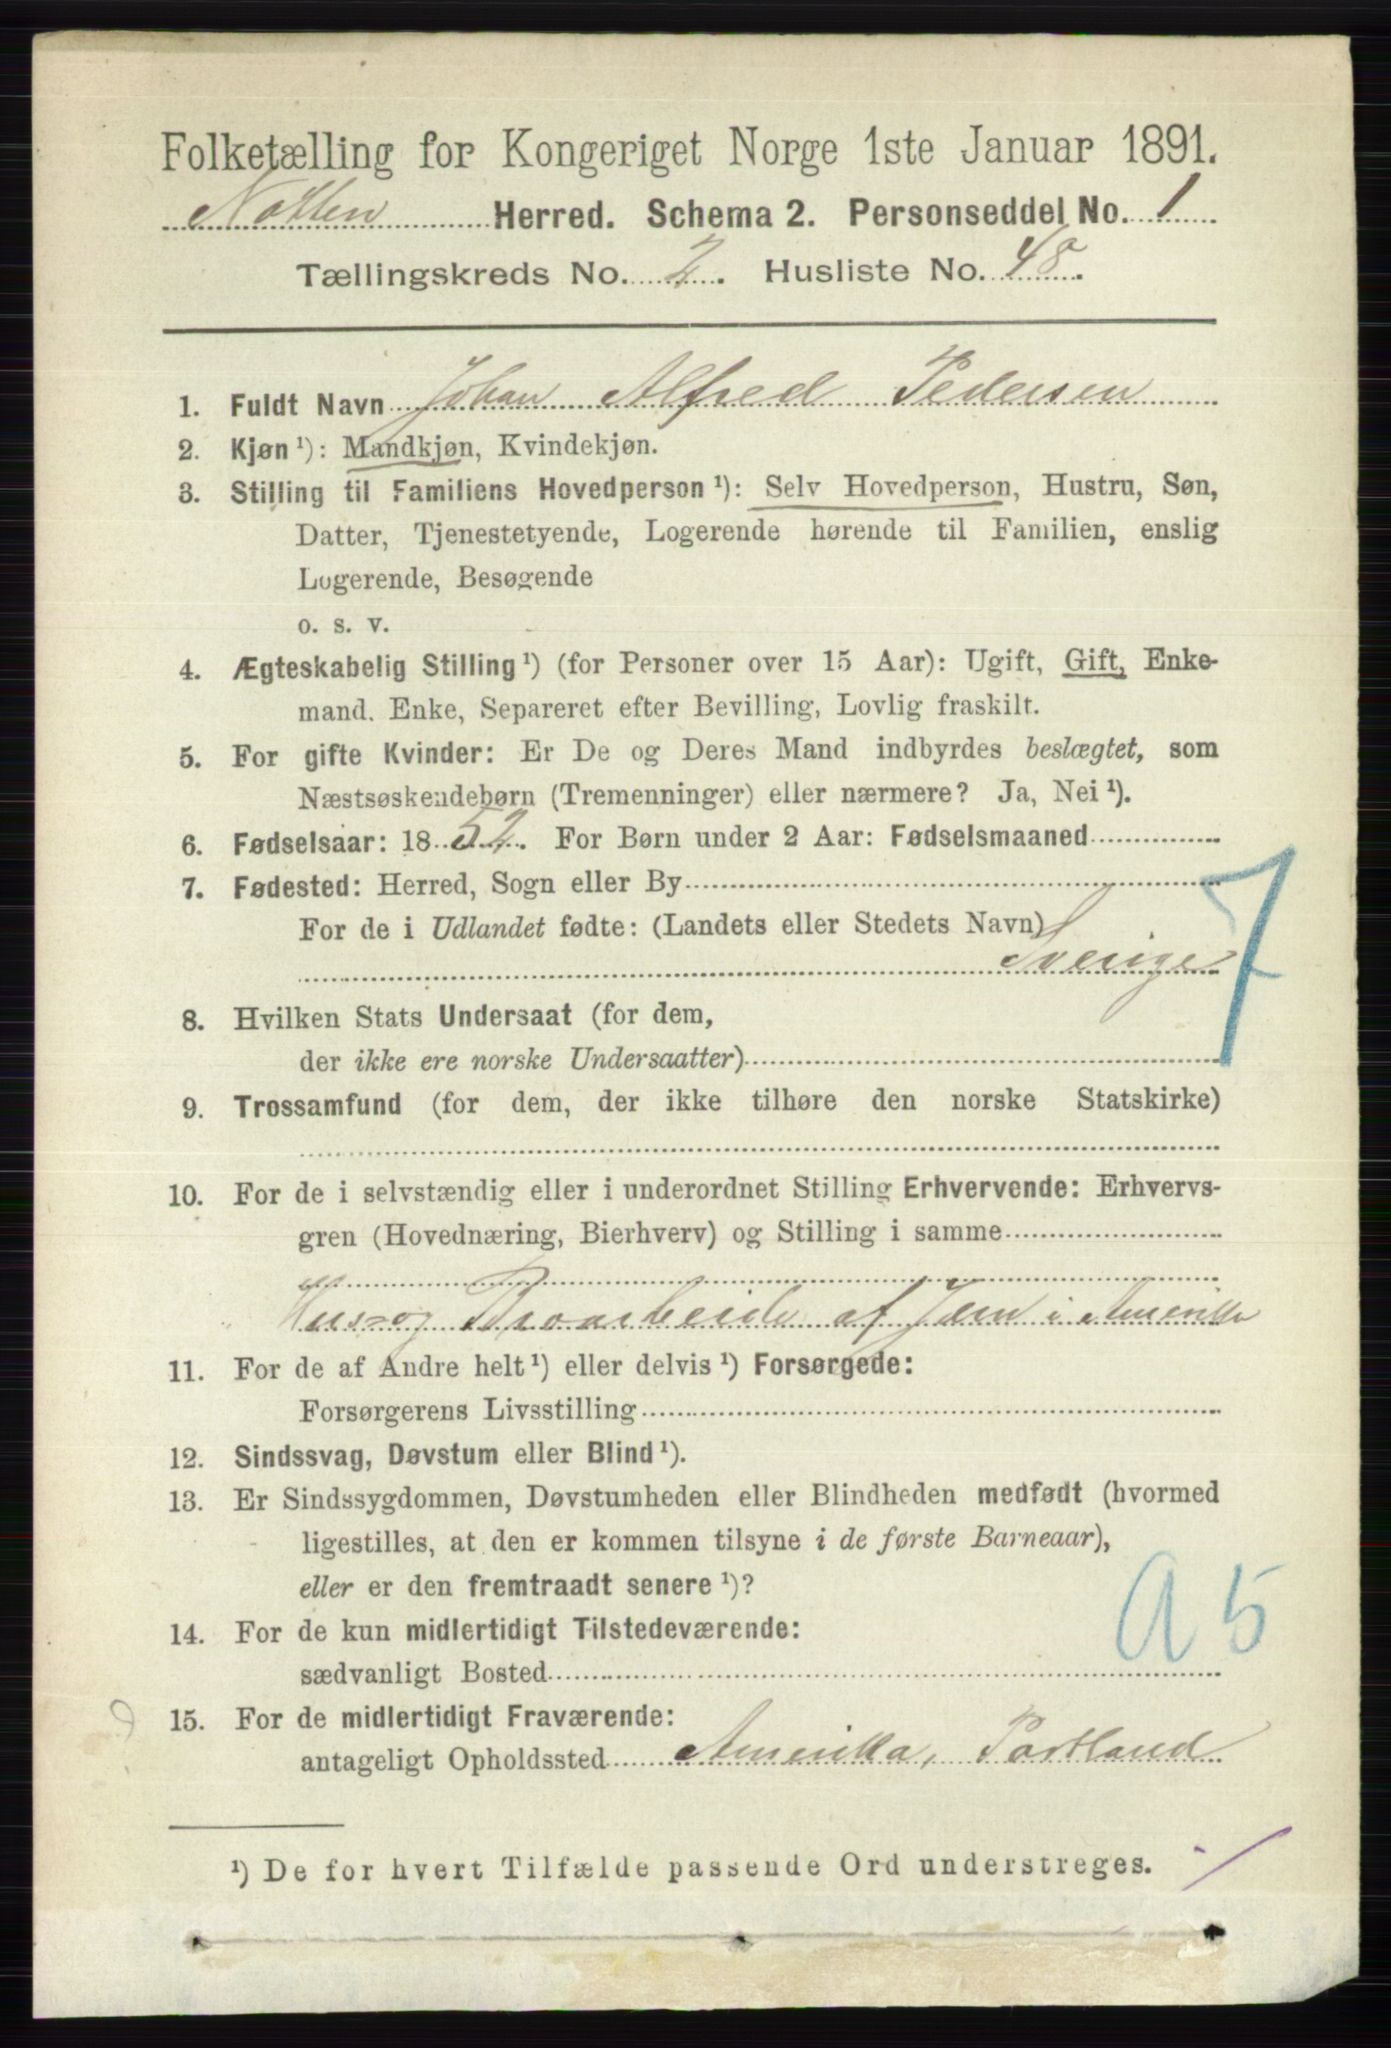 Folketælling for Kongeriget Norge 1ste Januar 1891.
Nøtterø Herred. Schema 2. Personseddel No. 1
Tællingskreds No. 2. Husliste No. 48.
1. Fuldt Navn Johan Alfred Pedersen
2. Kjøn ¹): Mandkjøn, Kvindekjøn.
3. Stilling til Familiens Hovedperson ¹): Selv Hovedperson, Hustru, Søn,
Datter, Tjenestetyende, Logerende hørende til Familien, enslig
Logerende, Besøgende
o. s. v.
4. Ægteskabelig Stilling ¹) (for Personer over 15 Aar): Ugift, Gift, Enke-
mand. Enke, Separeret efter Bevilling, Lovlig fraskilt.
5. For gifte Kvinder: Er De og Deres Mand indbyrdes beslægtet, som
Næstsøskendebørn (Tremenninger) eller nærmere? Ja, Nei ¹).
6. Fødselsaar: 1852. For Børn under 2 Aar: Fødselsmaaned
7. Fødested: Herred, Sogn eller By
For de i Udlandet fødte: (Landets eller Stedets Navn)
Sverige
7
8. Hvilken Stats Undersaat (for dem,
der ikke ere norske Undersaatter)
9. Trossamfund (for dem, der ikke tilhøre den norske Statskirke)
10. For de i selvstændig eller i underordnet Stilling Erhvervende: Erhvervs-
gren (Hovednæring, Bierhverv) og Stilling i samme
Hus- og Broarbeide af Jern i Amerikka
11. For de af Andre helt ¹) eller delvis ¹) Forsørgede:
Forsørgerens Livsstilling
12. Sindssvag, Døvstum eller Blind ¹).
13. Er Sindssygdommen, Døvstumheden eller Blindheden medfødt (hvormed
ligestilles, at den er kommen tilsyne i de første Barneaar),
eller er den fremtraadt senere ¹)?
a 5
14. For de kun midlertidigt Tilstedeværende:
sædvanligt Bosted
15. For de midlertidigt Fraværende:
antageligt Opholdssted Amerikka, Portland
¹) De for hvert Tilfælde passende Ord understreges.